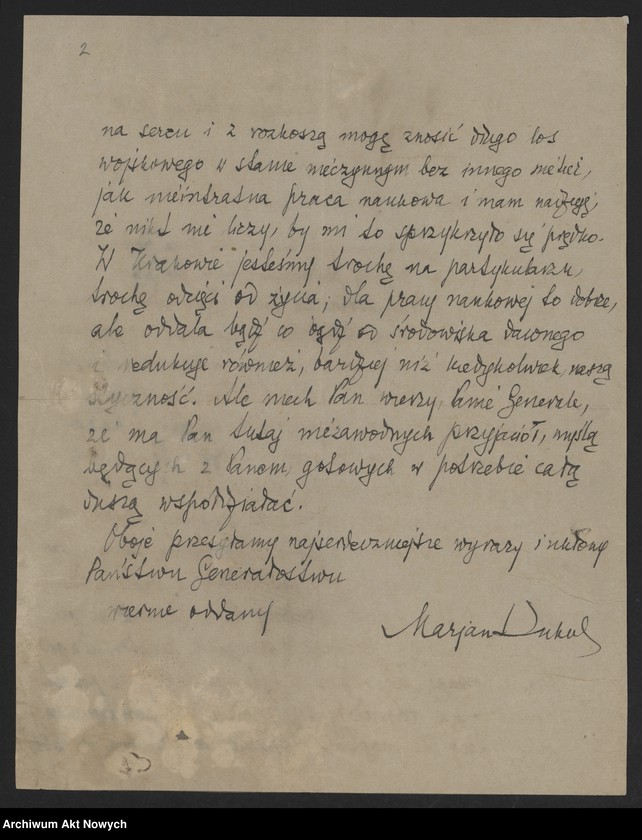 2
na sercu i z rozkoszą mogę znosić długo los
wojskowego w stanie nieczynnym bez innego
jak nieintratna praca naukowa i mam nadzieję,
że nikt nie liczy, by mi to sprzykrzyło się prędko.
W Krakowie jesteśmy trochę na partykularzu,
trochę odcięci od życia; dla pracy naukowej to dobre,
ale oddala bądź co bądź od środowiska dawnego
i redukuje również, bardziej niż kiedykolwiek, naszą
styczność. Ale niech Pan wierzy, Panie Generale,
że ma Pan tutaj niezawodnych przyjaciół, myślą
będących z Panem, gotowych w potrzebie całą
duszą współdziałać.
Oboje przesyłamy najserdeczniejsze wyrazy i ukłony
Państwu Generałostwu
wiernie oddany
Marjan Kukiel
Archiwum Akt Nowych